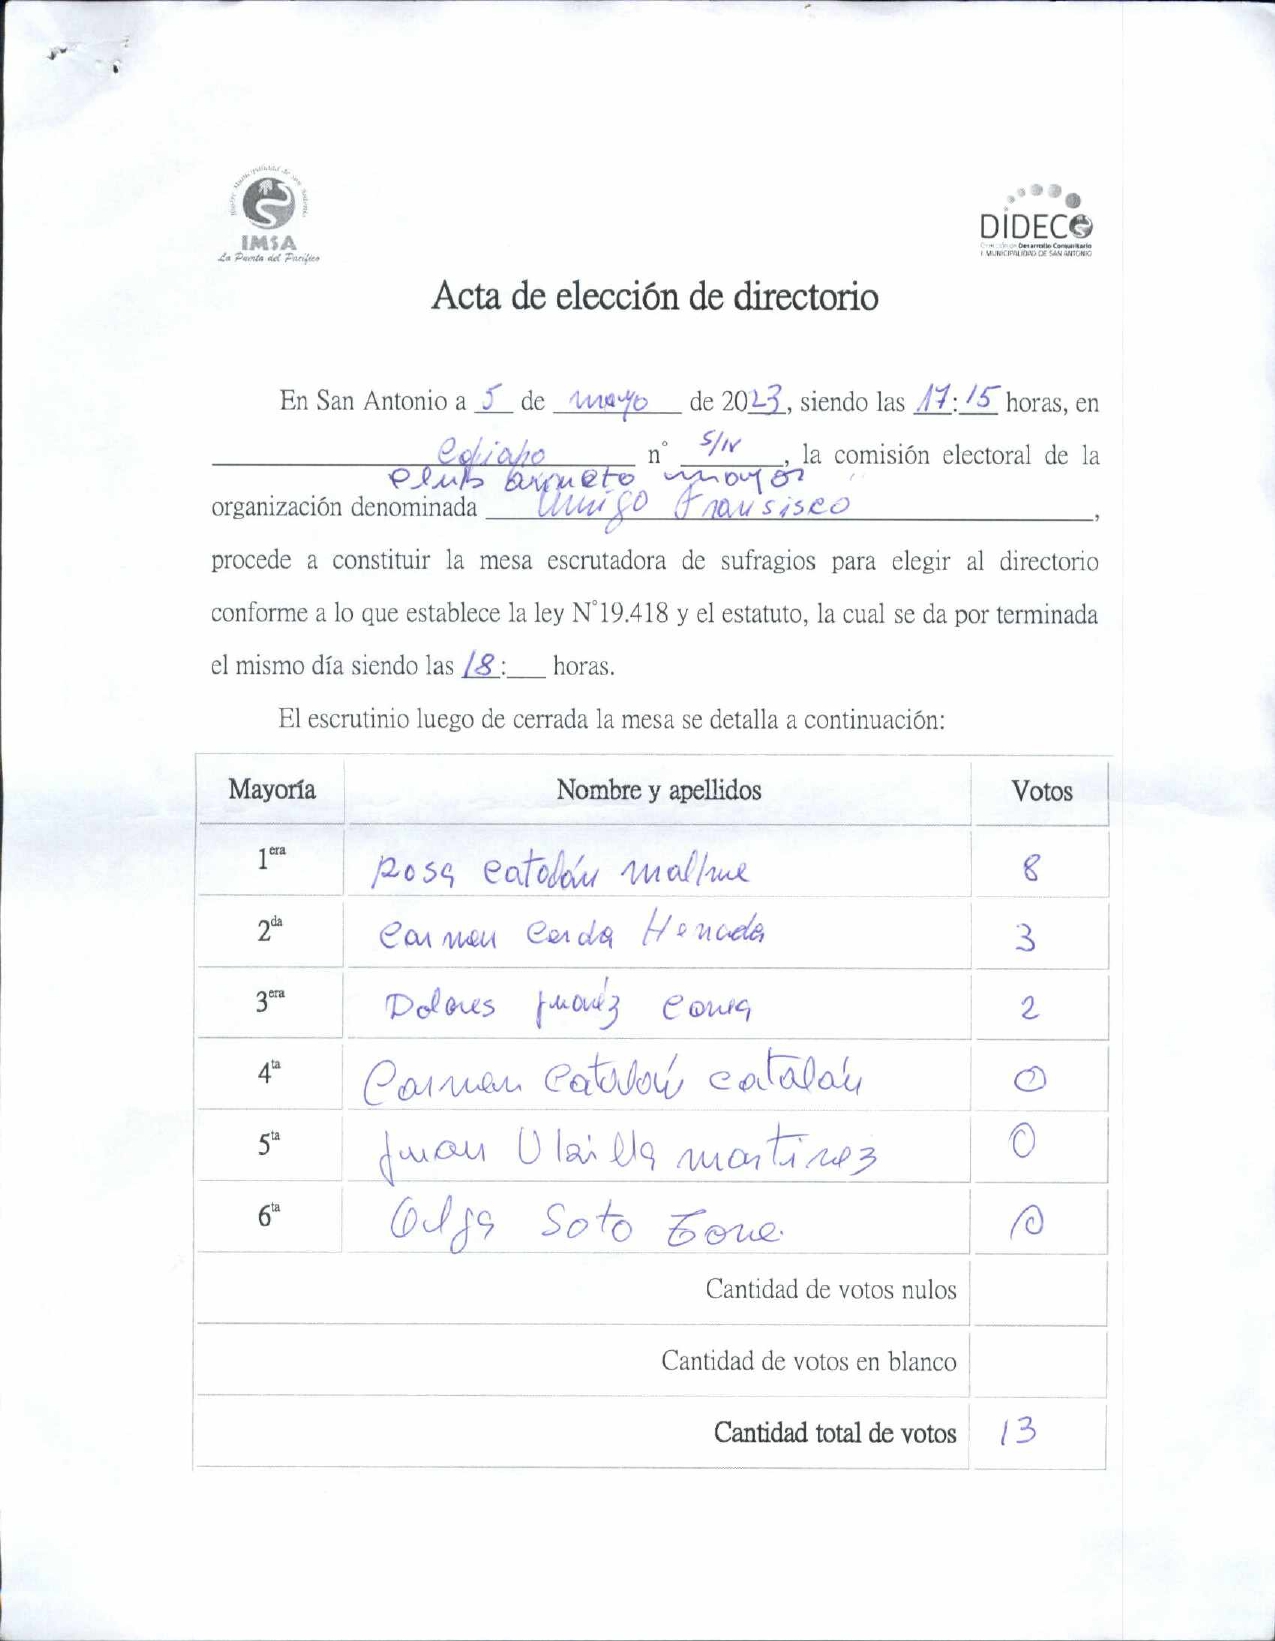 IMSA
La Puerta del Pacífico
DIDECO
Desarrollo Comunitario
I. MUNICIPALIDAD DE SAN ANTONIO
Acta de elección de directorio
En San Antonio a 5 de mayo de 2023, siendo las 17:15 horas, en
n° S/N, la comisión electoral de la
club mayor
organización denominada Amigo Fransisco,
procede a constituir la mesa escrutadora de sufragios para elegir al directorio
conforme a lo que establece la ley N°19.418 y el estatuto, la cual se da por terminada
el mismo día siendo las 18:___ horas.
El escrutinio luego de cerrada la mesa se detalla a continuación:
Mayoría Nombre y apellidos Votos
1era Rosa Catalán 8
2da Carmen Cerda 3
3era Dolores 2
4ta Carmen Catalán catalán 0
5ta Juan martinez 0
6ta Olga Soto 0
Cantidad de votos nulos
Cantidad de votos en blanco
Cantidad total de votos 13